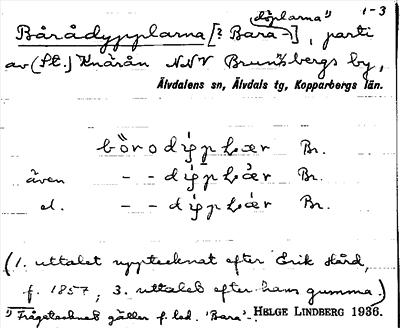 1-3
döplarna¹⁾
Bårådypplarna [? Bara-], parti
av (St.) Knärån N.N.V Brun¹⁾bergs by,
Älvdalens sn, Älvdals tg, Kopparbergs län.
Br.
även - - Br.
el. - - Br.
(1. uttalet upptecknat efter Erik Hård,
f. 1857; 3. uttalet efter hans gumma.)
¹⁾ Frågetecknet gäller f. led. 'Bara'-. HELGE LINDBERG 1936.